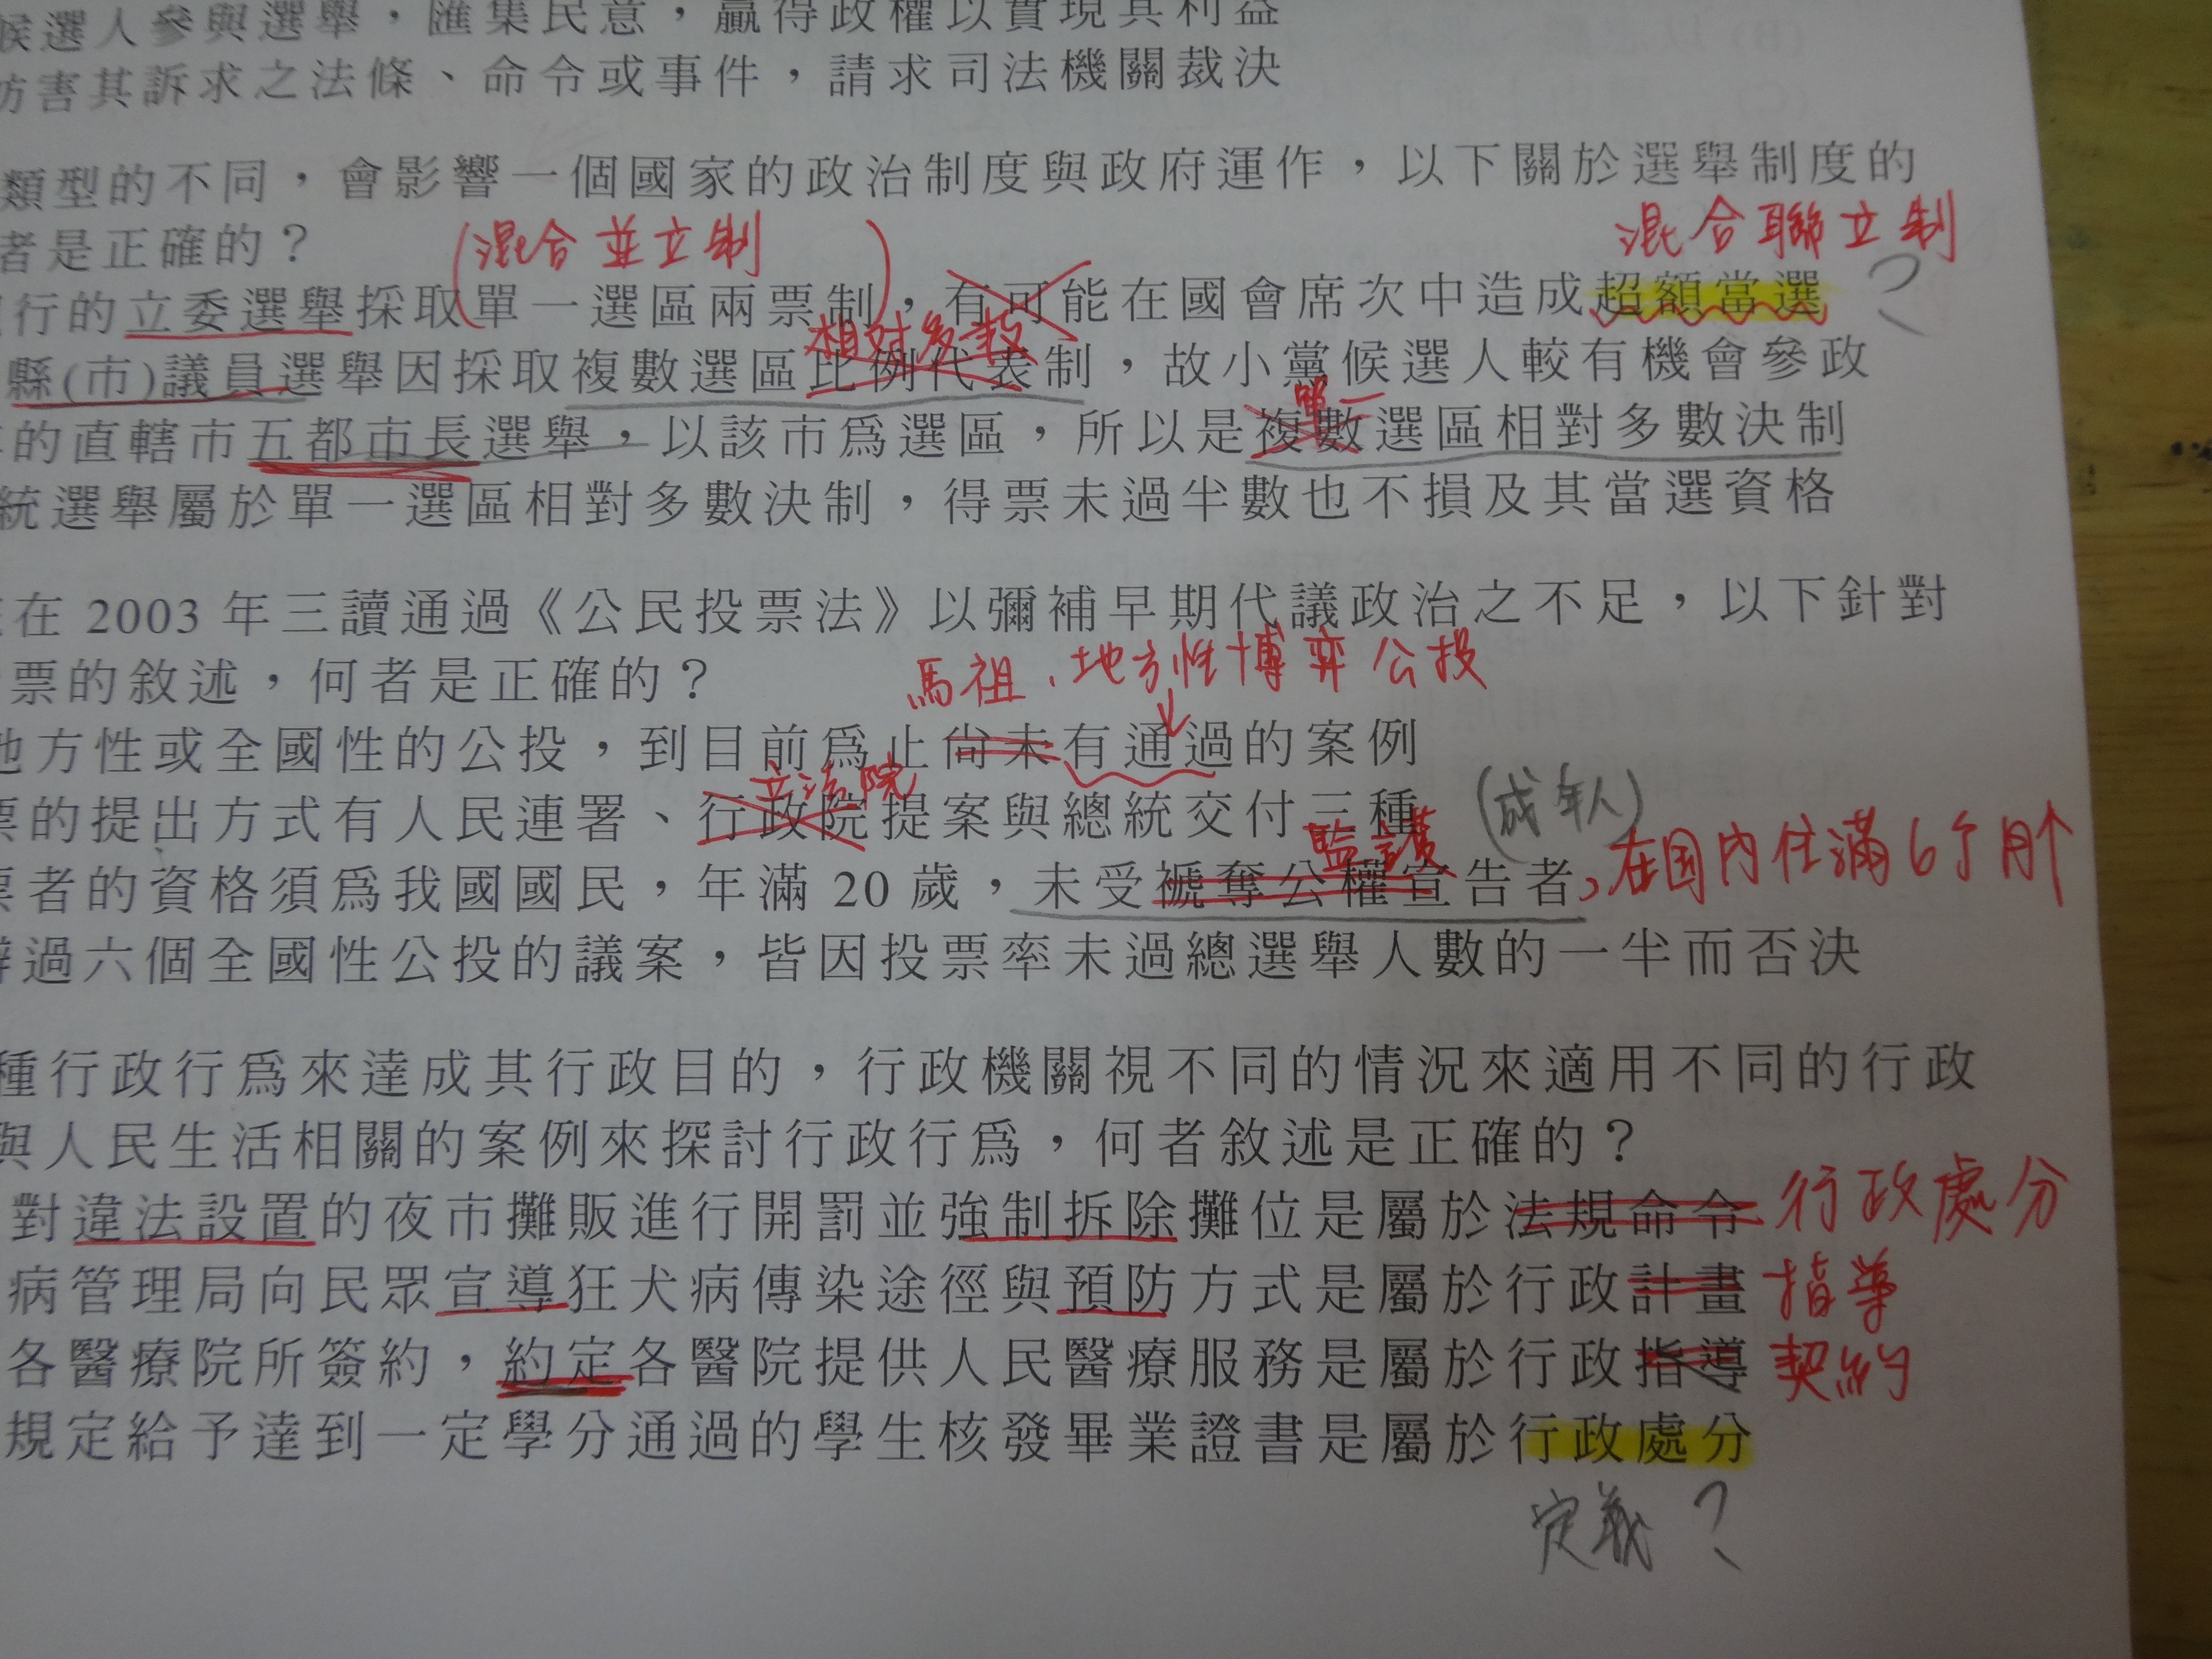 候選人參與選舉，匯集民意，贏得政權以實現其利益
妨害其訴求之法條、命令或事件，請求司法機關裁決
類型的不同，會影響一個國家的政治制度與政府運作，以下關於選舉制度的
者是正確的？
(混合並立制)
混合聯立制
行的立委選舉採取單一選區兩票制，有可能在國會席次中造成超額當選
?
相対多数
縣(市)議員選舉因採取複數選區比例代表制，故小黨候選人較有機會參政
單一
的直轄市五都市長選舉，以該市為選區，所以是複數選區相對多數決制
統選舉屬於單一選區相對多數決制，得票未過半數也不損及其當選資格
在 2003 年三讀通過《公民投票法》以彌補早期代議政治之不足，以下針對
票的敘述，何者是正確的？
馬祖、地方性博弈公投
地方性或全國性的公投，到目前為止尚未有通過的案例
立法院
票的提出方式有人民連署、行政院提案與總統交付三種
(成年人)
監護
票者的資格須為我國國民，年滿 20 歲，未受褫奪公權宣告者
，在国內住滿6个月↑
辦過六個全國性公投的議案，皆因投票率未過總選舉人數的一半而否決
種行政行為來達成其行政目的，行政機關視不同的情況來適用不同的行政
與人民生活相關的案例來探討行政行為，何者敘述是正確的？
對違法設置的夜市攤販進行開罰並強制拆除攤位是屬於法規命令 行政處分
病管理局向民眾宣導狂犬病傳染途徑與預防方式是屬於行政計畫 指導
各醫療院所簽約，約定各醫院提供人民醫療服務是屬於行政指導 契約
規定給予達到一定學分通過的學生核發畢業證書是屬於行政處分
定義？